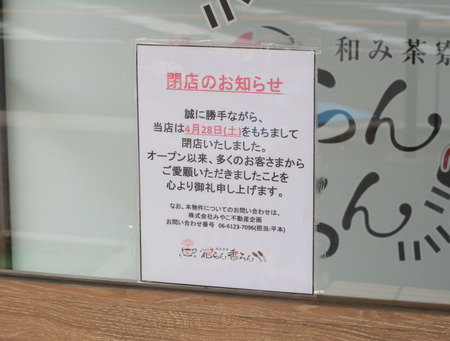 閉店のお知らせ
誠に勝手ながら、
当店は4月28日(土)をもちまして
閉店いたしました。
オープン以来、多くのお客さまから
ご愛顧いただきましたことを
心より御礼申し上げます。
なお、本物件についてのお問い合わせは、
株式会社みやこ不動産企画
お問い合わせ番号 06-6123-7096(担当:平本)
花らん香らん
和み茶寮
らん
らん